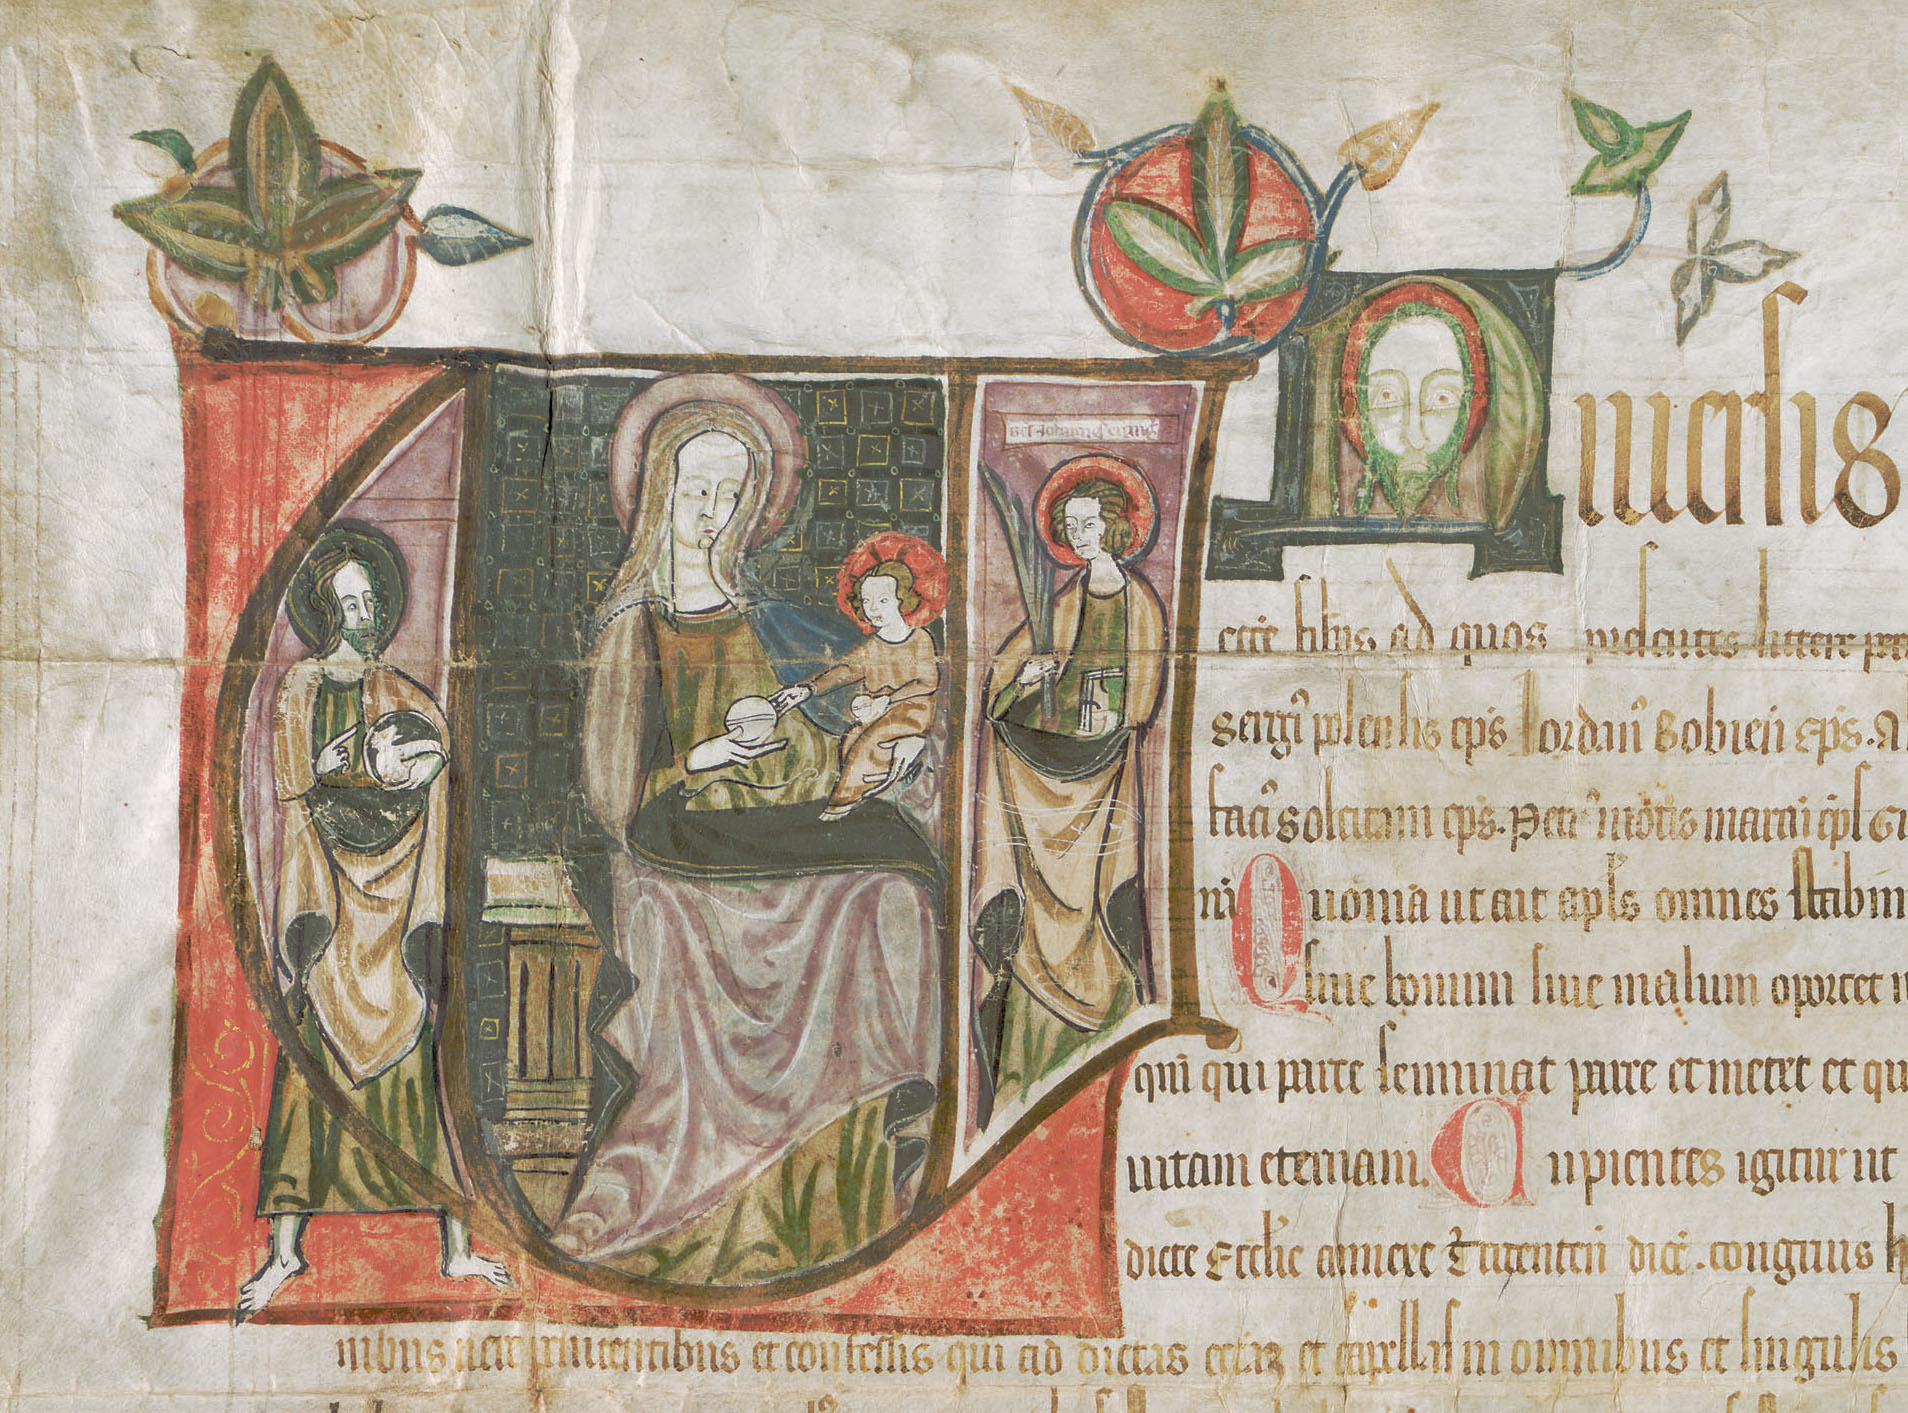 scs Johannes
Uniuersis
ecce filiis ad quos presentes littere
Sergi⁹ polensis ep̄s Iordan⁹ Bobien̄ Ep̄s. A
ep̄s. Petr⁹ mōtis marani ep̄s
ni Quoniā ut ait apl̄s omnes stabim
siue bonum siue malum oportet
qm̄ qui parce seminat parce et metet et qu
uitam eternam. Cupientes igitur ut
dicte Ecclesie dicē. congruis h
nibus uere penitentibus et confessis qui ad dictas et capellas in omnibus et singulis